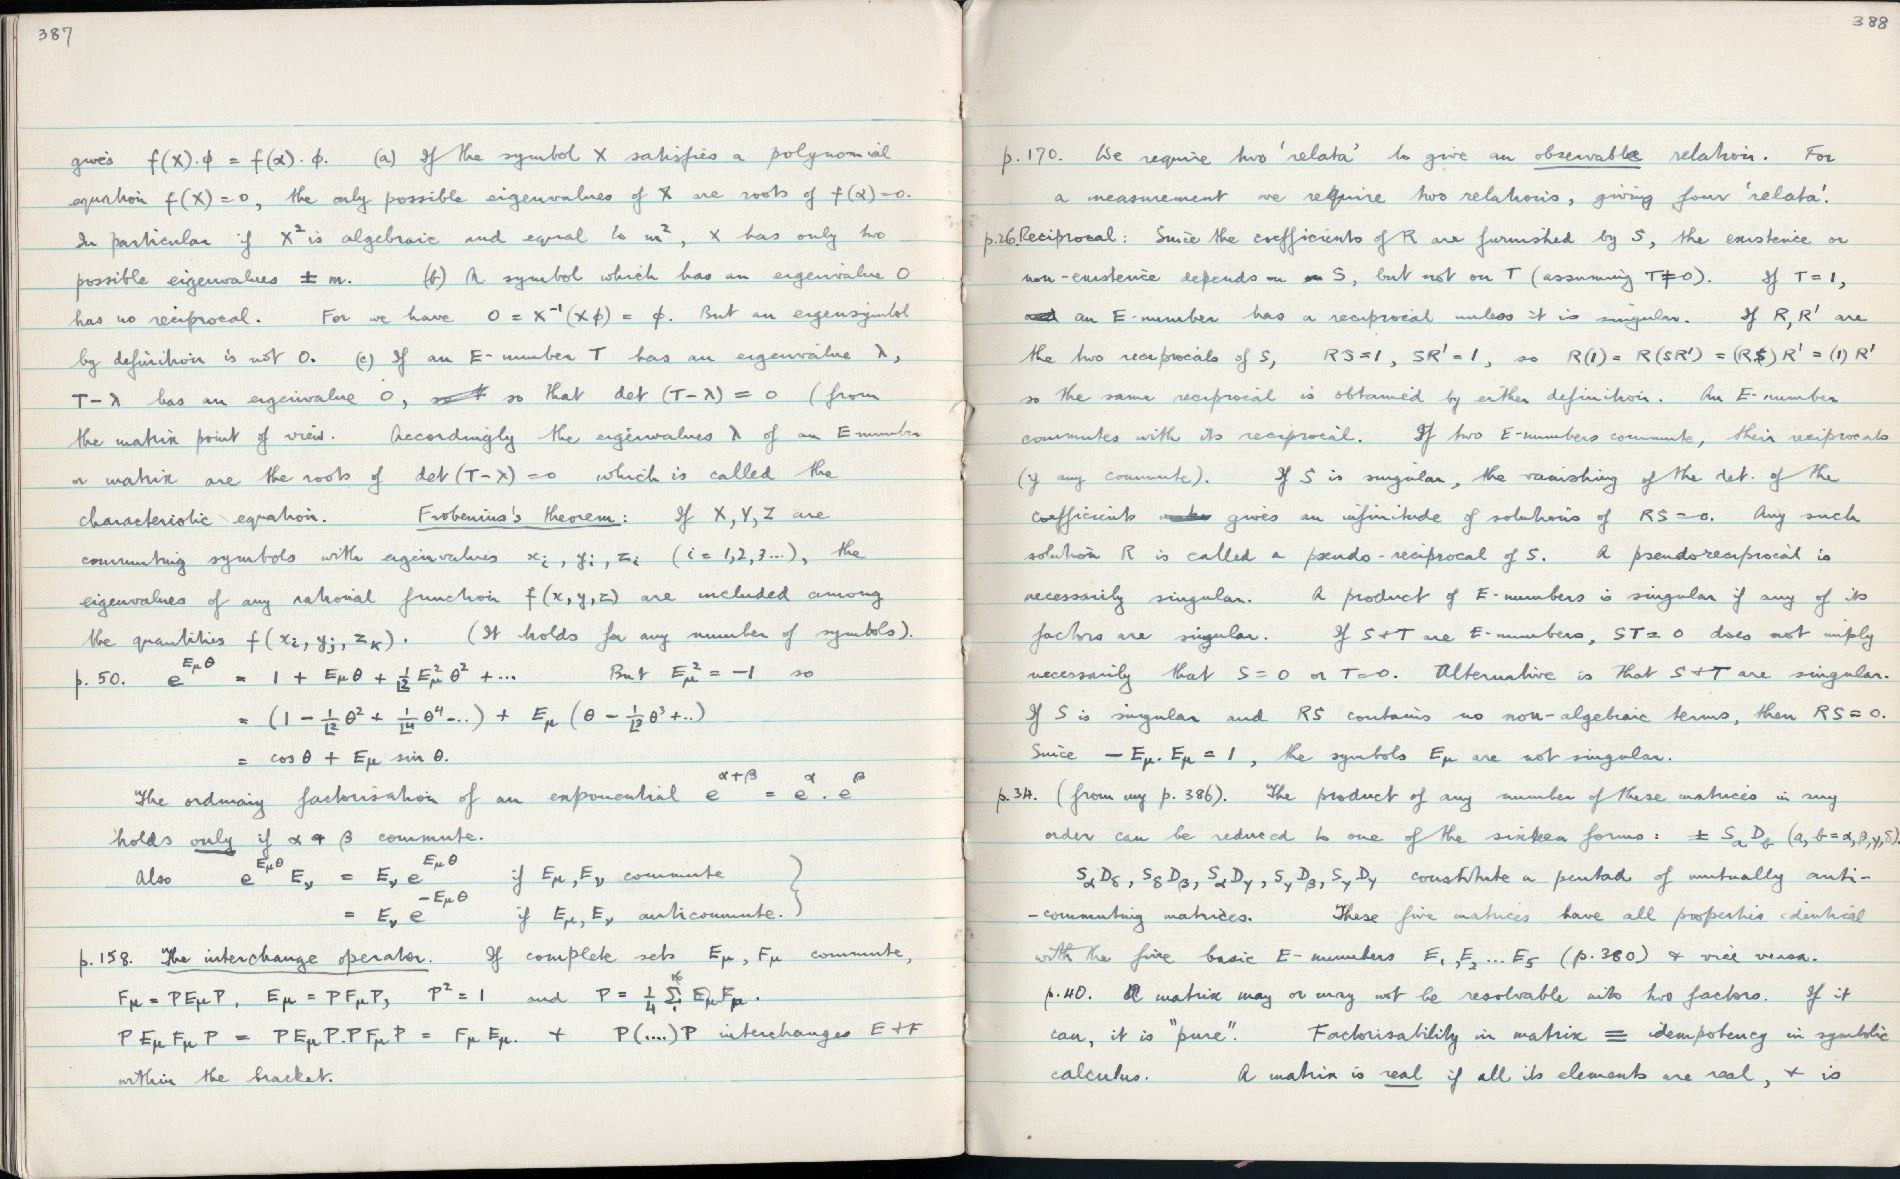 387
gives f(X).φ = f(α).φ. (a) If the symbol X satisfies a polynomial
equation f(X) = 0, the only possible eigenvalues of X are roots of f(α)=0.
In particular if X² is algebraic and equal to m², X has only two
possible eigenvalues ± m. (b) A symbol which has an eigenvalue 0
has no reciprocal. For we have 0 = X⁻¹(Xφ) = φ. But an eigensymbol
by definition is not 0. (c) If an E-number T has an eigenvalue λ,
T-λ has an eigenvalue 0, so that det (T-λ) = 0 (from
the matrix point of view. Accordingly the eigenvalues λ of an E number
or matrix are the roots of det (T-λ) = 0 which is called the
characteristic equation. Frobenius's theorem: If X, Y, Z are
commuting symbols with eigenvalues xᵢ, yᵢ, zᵢ (i = 1,2,3...), the
eigenvalues of any rational function f(x,y,z) are included among
the quantities f(xᵢ, yⱼ, zₖ). (It holds for any number of symbols).
p. 50. e^{E_μθ} = 1 + E_μθ + 1/|2 E_μ²θ² + ... But E_μ² = -1 so
= (1 - 1/|2 θ² + 1/|4 θ⁴ - ..) + E_μ (θ - 1/|3 θ³ + ..)
= cos θ + E_μ sin θ.
The ordinary factorisation of an exponential e^{α+β} = e^α . e^β
holds only if α + β commute.
Also e^{E_μθ} E_ν = E_ν e^{E_μθ} if E_μ, E_ν commute
= E_ν e^{-E_μθ} if E_μ, E_ν anticommute. }
p. 158. The interchange operator. If complete sets E_μ, F_μ commute,
F_μ = PE_μP, E_μ = PF_μP, P² = 1 and P = 1/4 Σ₁¹⁶ E_μF_μ.
PE_μF_μP = PE_μP.PF_μP = F_μE_μ. + P(....)P interchanges E + F
within the bracket.
388
p. 170. We require two 'relata' to give an observable relation. For
a measurement we require two relations, giving four 'relata'.
p.26 Reciprocal: Since the coefficients of R are furnished by S, the existence or
non-existence depends on S, but not on T (assuming T≠0). If T = 1,
an E-number has a reciprocal unless it is singular. If R, R' are
the two reciprocals of S, RS = 1, SR' = 1, so R(1) = R(SR') = (RS)R' = (1)R'
so the same reciprocal is obtained by either definition. An E-number
commutes with its reciprocal. If two E-numbers commute, their reciprocals
(if any commute). If S is singular, the vanishing of the det. of the
coefficients gives an infinitude of solutions of RS = 0. Any such
solution R is called a pseudo-reciprocal of S. A pseudoreciprocal is
necessarily singular. A product of E-numbers is singular if any of its
factors are singular. If S + T are E-numbers, ST = 0 does not imply
necessarily that S = 0 or T = 0. Alternative is that S + T are singular.
If S is singular and RS contains no non-algebraic terms, then RS = 0.
Since -E_μ.E_μ = 1, the symbols E_μ are not singular.
p. 34. (from my p. 386). The product of any number of these matrices in any
order can be reduced to one of the sixteen forms: ± S_a D_b (a, b = α, β, γ, δ).
S_αD_δ, S_δD_β, S_αD_γ, S_γD_β, S_γD_γ constitute a pentad of mutually anti-
-commuting matrices. These five matrices have all properties identical
with the five basic E-numbers E₁, E₂ ... E₅ (p. 380) + vice versa.
p. 40. A matrix may or may not be resolvable into two factors. If it
can, it is "pure". Factorisability in matrix ≡ idempotency in symbolic
calculus. A matrix is real if all its elements are real, + is